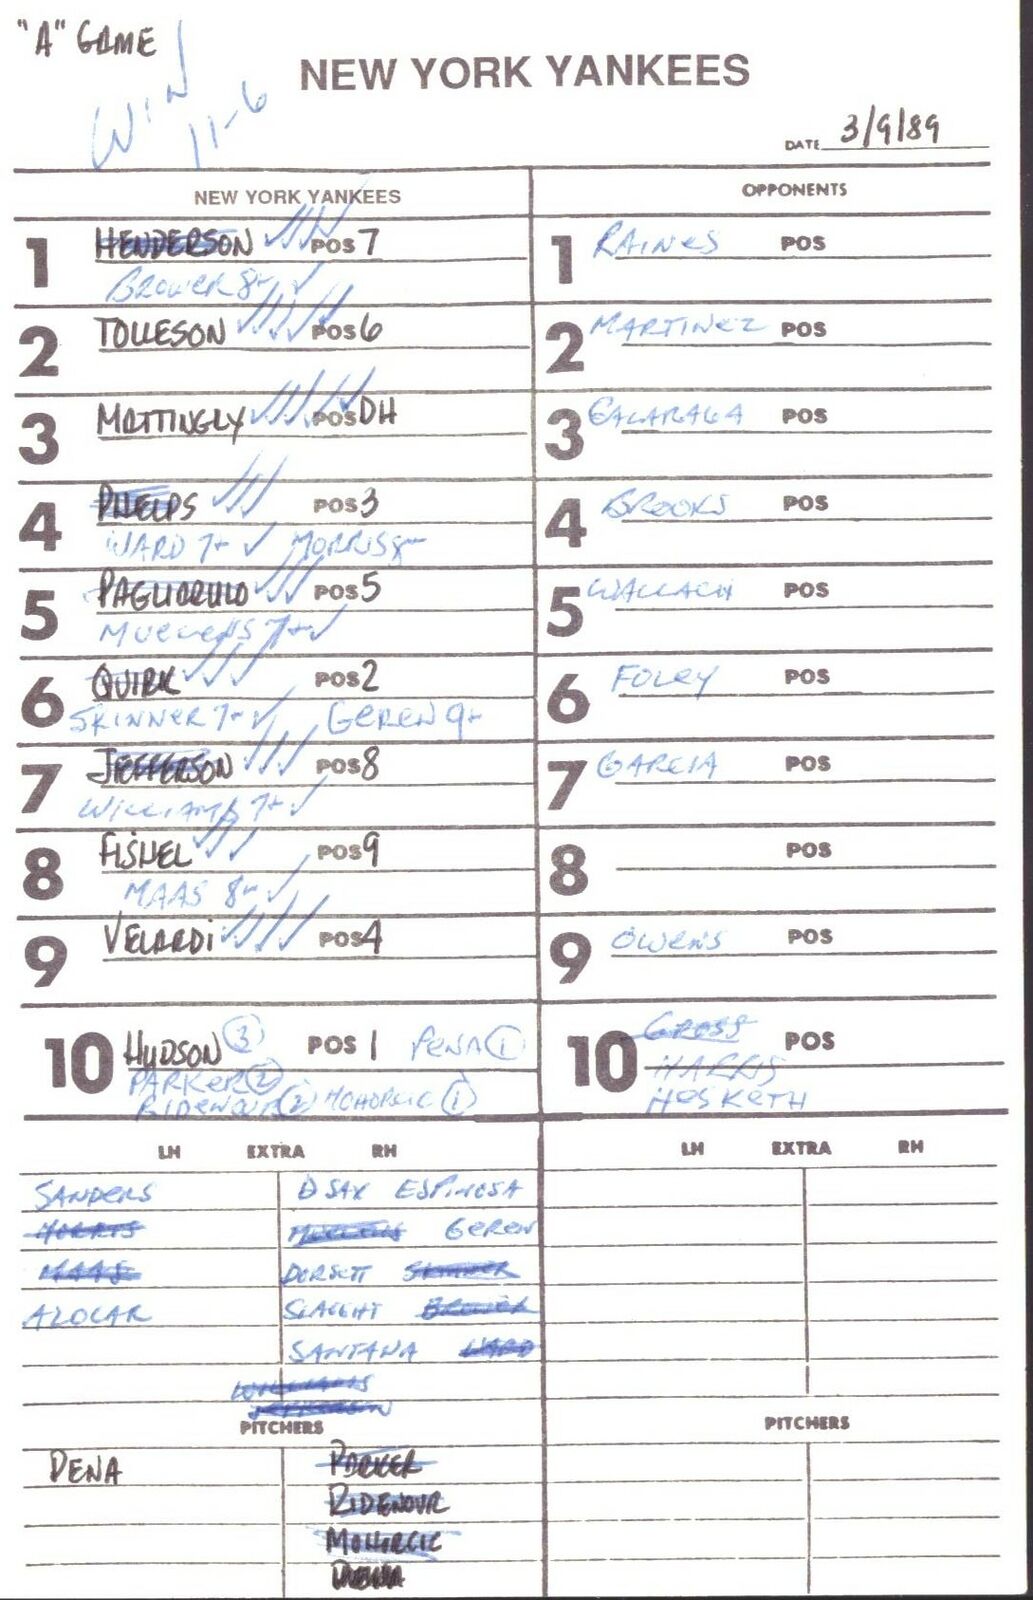 "A" GAME
WIN
11-6
NEW YORK YANKEES
DATE 3/9/89
NEW YORK YANKEES
OPPONENTS
1 HENDERSON POS 7
BROWER 8-
1 RAINES POS
2 TOLLESON POS 6
2 MARTINEZ POS
3 MATTINGLY POS DH
3 GALARAGA POS
4 PHELPS POS 3
WARD 7+ MORRIS 8-
4 BROOKS POS
5 PAGLIARULO POS 5
MUELLENS 7+
5 WALLACH POS
6 QUIRK POS 2
SKINNER 7+ GEREN 9+
6 FOLEY POS
7 JEFFERSON POS 8
WILLIAMS 7+
7 GARCIA POS
8 FISHEL POS 9
MAAS 8-
8 POS
9 VELARDI POS 4
9 OWENS POS
10 HUDSON 3 POS 1 PENA 1
PARKER 2
RIDENOUR 2 MOHORCIC 1
10 GROSS POS
HARRIS
HESKETH
LH EXTRA RH
LH EXTRA RH
SANDERS D SAX ESPINOSA
MORRIS MUELLENS GEREN
MAAS DORSETT SKINNER
AZOCAR SLAUGHT BROWER
SANTANA WARD
WILLIAMS
JEFFERSON
PITCHERS
PITCHERS
PENA PARKER
RIDENOUR
MOHORCIC